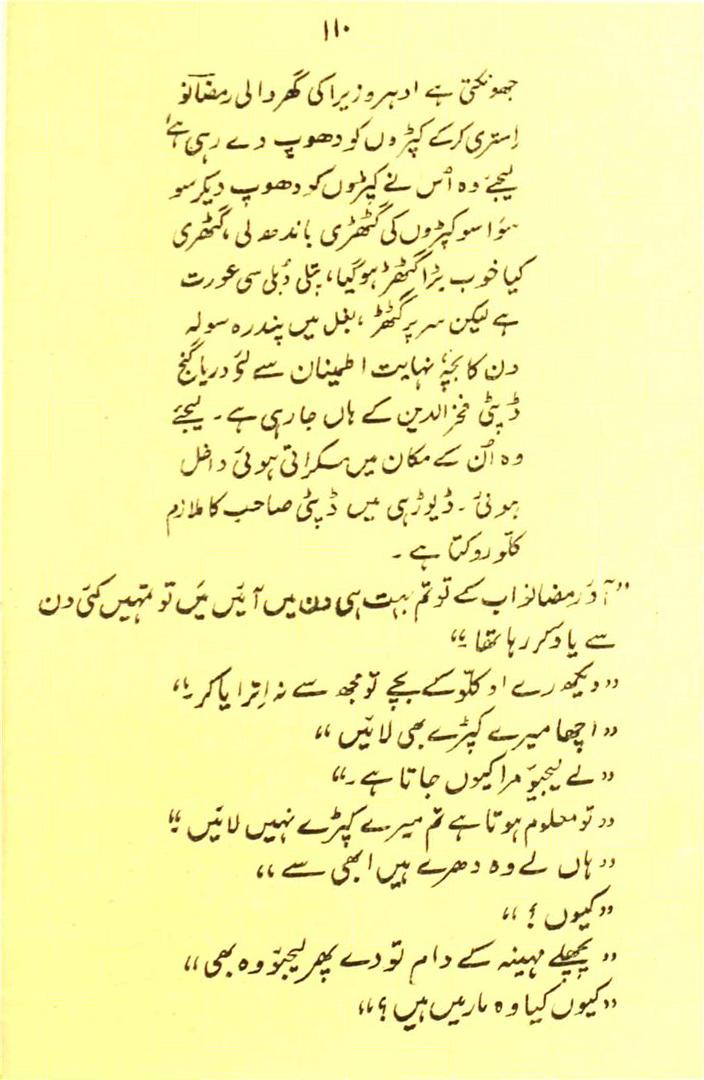 ۱۱۰
جھونکتی ہے ادہر وزیرا کی گھر والی رمضانو
اِستری کرکے کپڑوں کو دھوپ دے رہی ہے
لیجئے وہ اُس نے کپڑوں کو دھوپ دیکر سو
سوا سو کپڑوں کی گٹھڑی باندھ لی، گٹھری
کیا خوب بڑا گٹھڑ ہوگیا، پتلی دُبلی سی عورت
ہے لیکن سر پر گٹھڑ، بغل میں پندرہ سولہ
دن کا بچّہ نہایت اطمینان سے لئے دریا گنج
ڈپٹی فخر الدین کے ہاں جارہی ہے۔ لیجئے
وہ اُن کے مکان میں مسکراتی ہوئی داخل
ہوئی۔ ڈیوڑہی میں ڈپٹی صاحب کا ملازم
کلّو روکتا ہے۔
”آؤ رمضانو اب کے تو تم بہت ہی دن میں آئیں میں تو تمہیں کئی دن
سے یاد کر رہا تھا۔“
”دیکھ رے او کلّو کے بچے تو مجھ سے نہ اِترایا کر۔“
”اچھا میرے کپڑے بھی لائیں“
”لے لیجیو مرا کیوں جاتا ہے۔“
”تو معلوم ہوتا ہے تم میرے کپڑے نہیں لائیں۔“
”ہاں لے وہ دھرے ہیں ابھی سے“
”کیوں؟“
”پچھلے مہینہ کے دام تو دے پھر لیجیو وہ بھی“
”کیوں کیا وہ مارہیں ہیں؟“